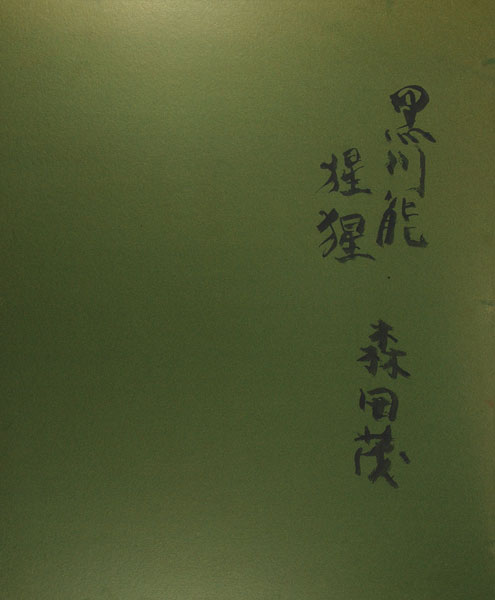 黒川能
猩猩
森田茂